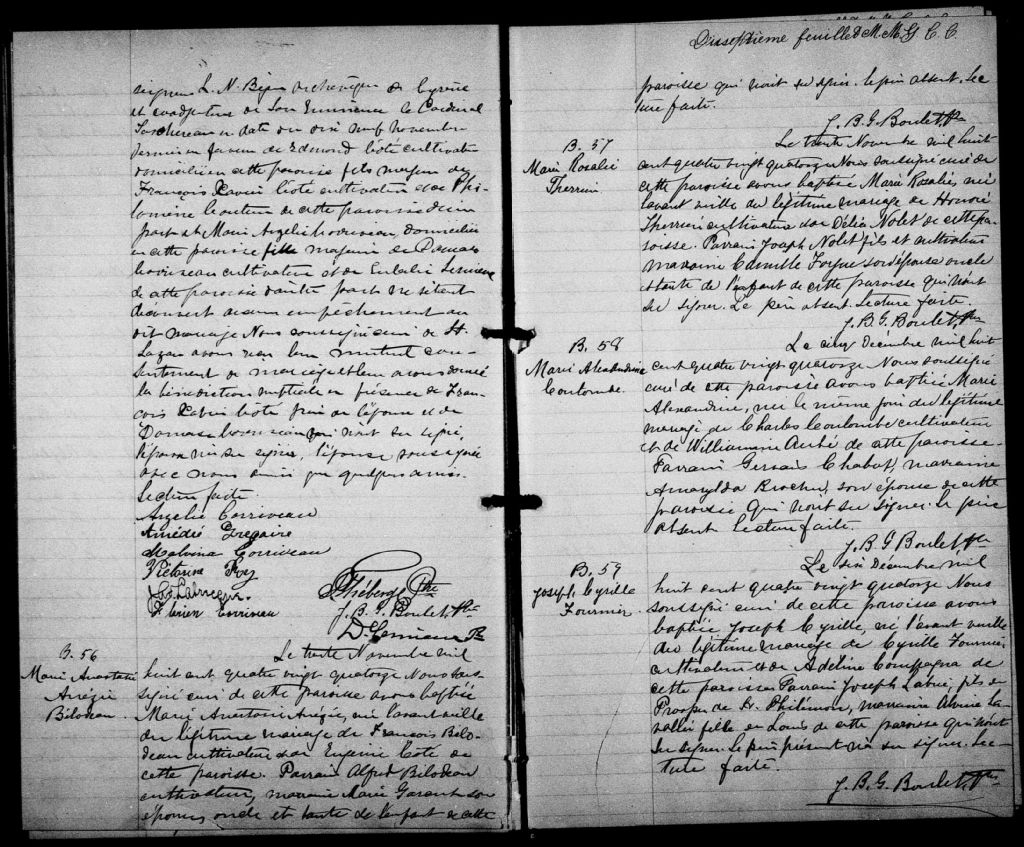 signeur L. N. Bégin archevêque de Cyrène
et coadjuteur de Son Eminence le Cardinal
Taschereau en date du dix neuf novembre
dernier en faveur de Edmond Coté cultivateur
domicilié en cette paroisse fils majeur de
François Xavier Coté cultivateur et de Phi-
lomène de cette paroisse d'une
part et Marie Azélie Corriveau domiciliée
en cette paroisse fille majeure de Damase
Corriveau cultivateur et de Eulalie Lemieux
de cette paroisse d'autre part ne s'étant
découvert aucun empêchement au
dit mariage Nous soussigné curé de St.
Lazare avons reçu leur mutuel con-
sentement de mariage et leur avons donné
la bénédiction nuptiale en présence de Fran-
çois Xavier Coté père de l'époux et de
Damase Corriveau qui n'ont su signer,
l'époux n'a su signer, l'épouse soussignée
avec nous ainsi que quelques amis.
Lecture faite.
Azélie Corriveau
Amédié Gregoire
Malvina Corriveau
Victorine Roy
F. Xérien Corriveau
Théberge Ptre
J. B. G. Boulet, Ptre
D. Lemieux Ptre
B. 56
Marie Anastasie
Arégie
Bilodeau
Le trente Novembre mil
huit cent quatre vingt quatorze Nous sous-
signé curé de cette paroisse avons baptisé
Marie Anastasie Arégie, née l'avant veille
du légitime mariage de François Bilo-
deau cultivateur et de Eugénie Coté de
cette paroisse. Parrain Alfred Bilodeau
cultivateur, marraine Marie Garant son
épouse, oncle et tante de l'enfant de cette
Dixseptième feuillet M. M. G. C. C.
paroisse qui n'ont su signer. le père absent. Lec
ture faite.
J. B. G. Boulet, Ptre
B. 57
Marie Rosalie
Therrien
Le trente Novembre mil huit
cent quatre vingt quatorze Nous soussigné curé de
cette paroisse avons baptisé Marie Rosalie, née
l'avant veille du légitime mariage de Honoré
Therrien cultivateur et de Délia Nolet de cette pa-
roisse. Parrain Joseph Nolet fils et cultivateur
marraine Camille Forgue son épouse oncle
et tante de l'enfant de cette paroisse qui n'ont
su signer. Le père absent. Lecture faite.
J. B. G. Boulet, Ptre
B. 58
Marie Alexandrine
Coulombe.
Le cinq Décembre mil huit
cent quatre vingt quatorze Nous soussigné
curé de cette paroisse avons baptisé Marie
Alexandrine, née le même jour du légitime
mariage de Charles Coulombe cultivateur
et de Williamine Aubé de cette paroisse.
Parrain Gervais Chabot, marraine
Amarylda Brochu, son épouse de cette
paroisse qui n'ont su signer. le père
absent. Lecture faite.
J. B. G Boulet, Ptre
B. 59
Joseph Cyrille
Fournier
Le six Décembre mil
huit cent quatre vingt quatorze Nous
soussigné curé de cette paroisse avons
baptisé Joseph Cyrille, né l'avant veille
du légitime mariage de Cyrille Fournier
cultivateur et de Adeline Compagna de
cette paroisse Parrain Joseph Labrie, fils de
Prosper de St. Philémon, marraine Alvina La-
vallée fille de Louis de cette paroisse qui n'ont
su signer. le père présent n'a su signer. Lec-
ture faite.
J. B. G. Boulet, Ptre